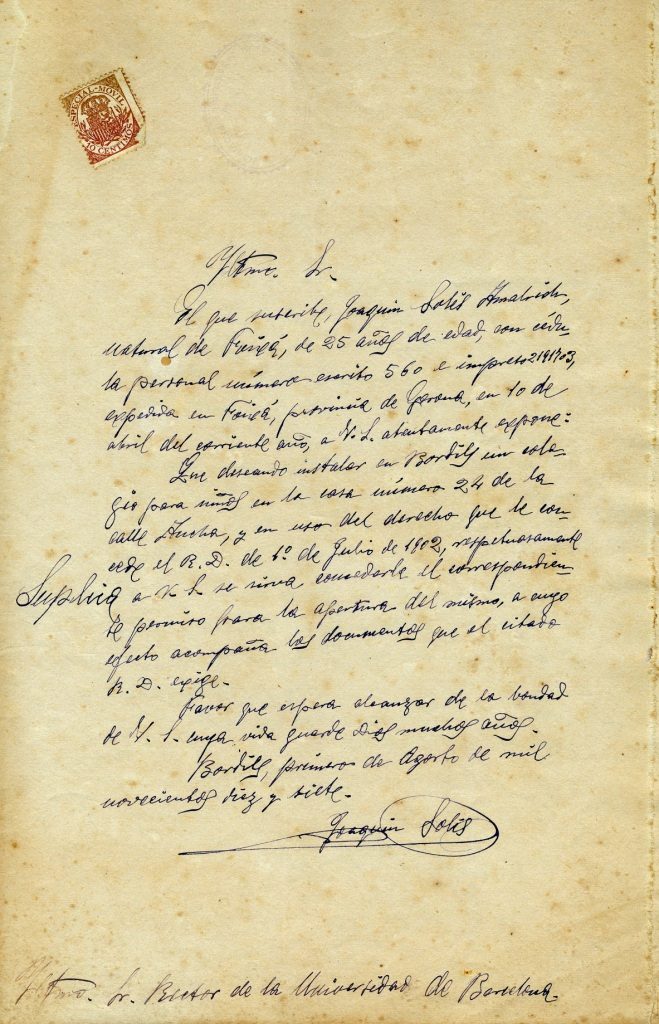 ESPECIAL-MOVIL
10 CENTIMOS
Iltmo. Sr.
El que suscribe, Joaquin Solés Amalrich,
natural de Foixá, de 25 años de edad, con cédu-
la personal número escrito 560 e impreso 219703,
expedida en Foixá, provincia de Gerona, en 10 de
abril del corriente año, a V. S. atentamente expone:
Que deseando instalar en Bordils un cole-
gio para niños en la casa número 24 de la
calle Ancha, y en uso del derecho que le con-
cede el R. D. de 1º de Julio de 1902, respetuosamente
Suplica a V. S. se sirva concederle el correspondien-
te permiso para la apertura del mismo, a cuyo
efecto acompaña los documentos que el citado
R. D. exige.
Favor que espera alcanzar de la bondad
de V. S. cuya vida guarde Dios muchos años.
Bordils, primero de Agosto de mil
novecientos diez y siete.
Joaquin Solés
Iltmo. Sr. Rector de la Universidad de Barcelona.